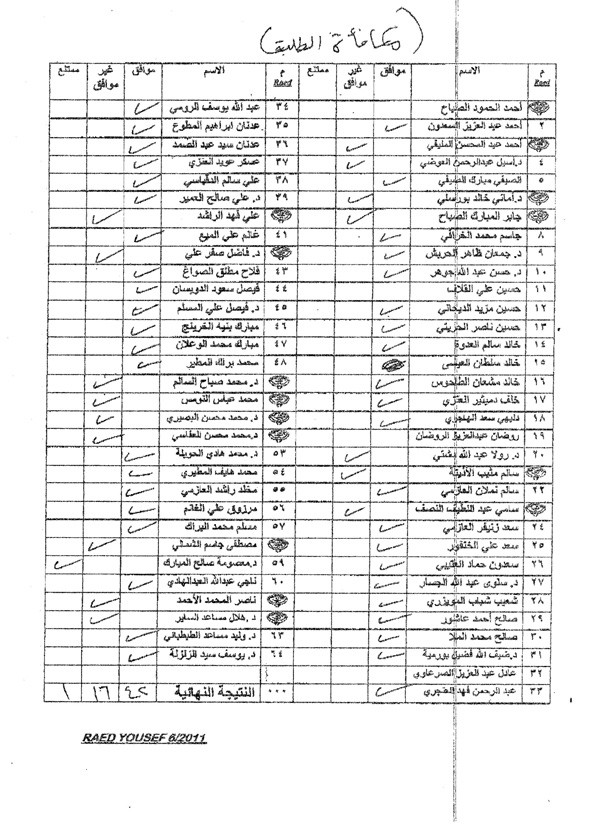 (مكافأة الطلبة)
م Raed الاسم موافق غير موافق ممتنع
أحمد الحمود الصباح
٢ أحمد عبد العزيز السعدون
أحمد عبد المحسن المليفي
٤ د. أسيل عبدالرحمن العوضي
٥ الصيفي مبارك الصيفي
د. أماني خالد بورسلي
جابر المبارك الصباح
٨ جاسم محمد الخرافي
٩ د. جمعان ظاهر الحربش
١٠ د. حسن عبد الله جوهر
١١ حسين علي القلاف
١٢ حسين مزيد الديحاني
١٣ حسين ناصر الحريتي
١٤ خالد سالم العدوة
١٥ خالد سلطان العيسى
١٦ خالد مشعان الطاحوس
١٧ خلف دميثير العنزي
١٨ دليهي سعد الهاجري
١٩ روضان عبدالعزيز الروضان
٢٠ د. رولا عبد الله دشتي
سالم مثيب الأذينة
٢٢ سالم نملان العازمي
سامي عبد اللطيف النصف
٢٤ سعد زنيفر العازمي
٢٥ سعد علي الخنفور
٢٦ سعدون حماد العتيبي
٢٧ د. سلوى عبد الله الجسار
٢٨ شعيب شباب المويزري
٢٩ صالح أحمد عاشور
٣٠ صالح محمد الملا
٣١ د. ضيف الله فضيل بورمية
٣٢ عادل عبد العزيز الصرعاوي
٣٣ عبد الرحمن فهد العنجري
م Raed الاسم موافق غير موافق ممتنع
٣٤ عبد الله يوسف الرومي
٣٥ عدنان ابراهيم المطوع
٣٦ عدنان سيد عبد الصمد
٣٧ عسكر عويد العنزي
٣٨ علي سالم الدقباسي
٣٩ د. علي صالح العمير
علي فهد الراشد
٤١ غانم علي الميع
د. فاضل صفر علي
٤٣ فلاح مطلق الصواغ
٤٤ فيصل سعود الدويسان
٤٥ د. فيصل علي المسلم
٤٦ مبارك بنيه الخرينج
٤٧ مبارك محمد الوعلان
٤٨ محمد براك المطير
د. محمد صباح السالم
محمد عباس النومس
د. محمد محسن البصيري
د. محمد محسن العفاسي
٥٣ د. محمد هادي الحويلة
٥٤ محمد هايف المطيري
٥٥ مخلد راشد العازمي
٥٦ مرزوق علي الغانم
٥٧ مسلم محمد البراك
مصطفى جاسم الشمالي
٥٩ د. معصومة صالح المبارك
٦٠ ناجي عبدالله العبدالهادي
ناصر المحمد الأحمد
د. هلال مساعد الساير
٦٣ د. وليد مساعد الطبطبائي
٦٤ د. يوسف سيد الزلزلة
٠٠٠ النتيجة النهائية ٤٢ ١٦ ١
RAED YOUSEF 6/2011